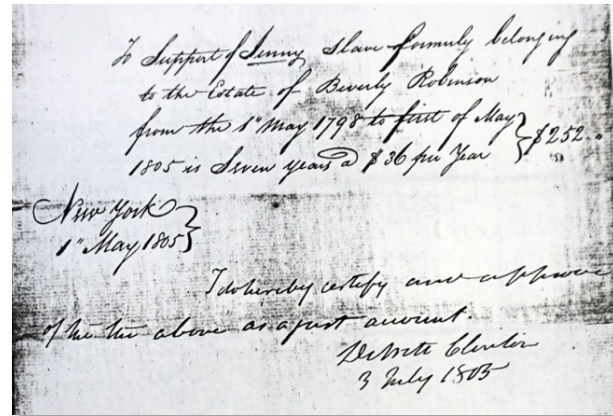 To Support of Jenny Slave formerly belonging
to the Estate of Beverly Robinson
from the 1st May 1798 to first of May
1805 is Seven years @ $36 per Year } $252.
New York
1st May 1805 }
I do hereby certify and approve
of the the above as a just account
DeWitt Clinton
3 July 1805